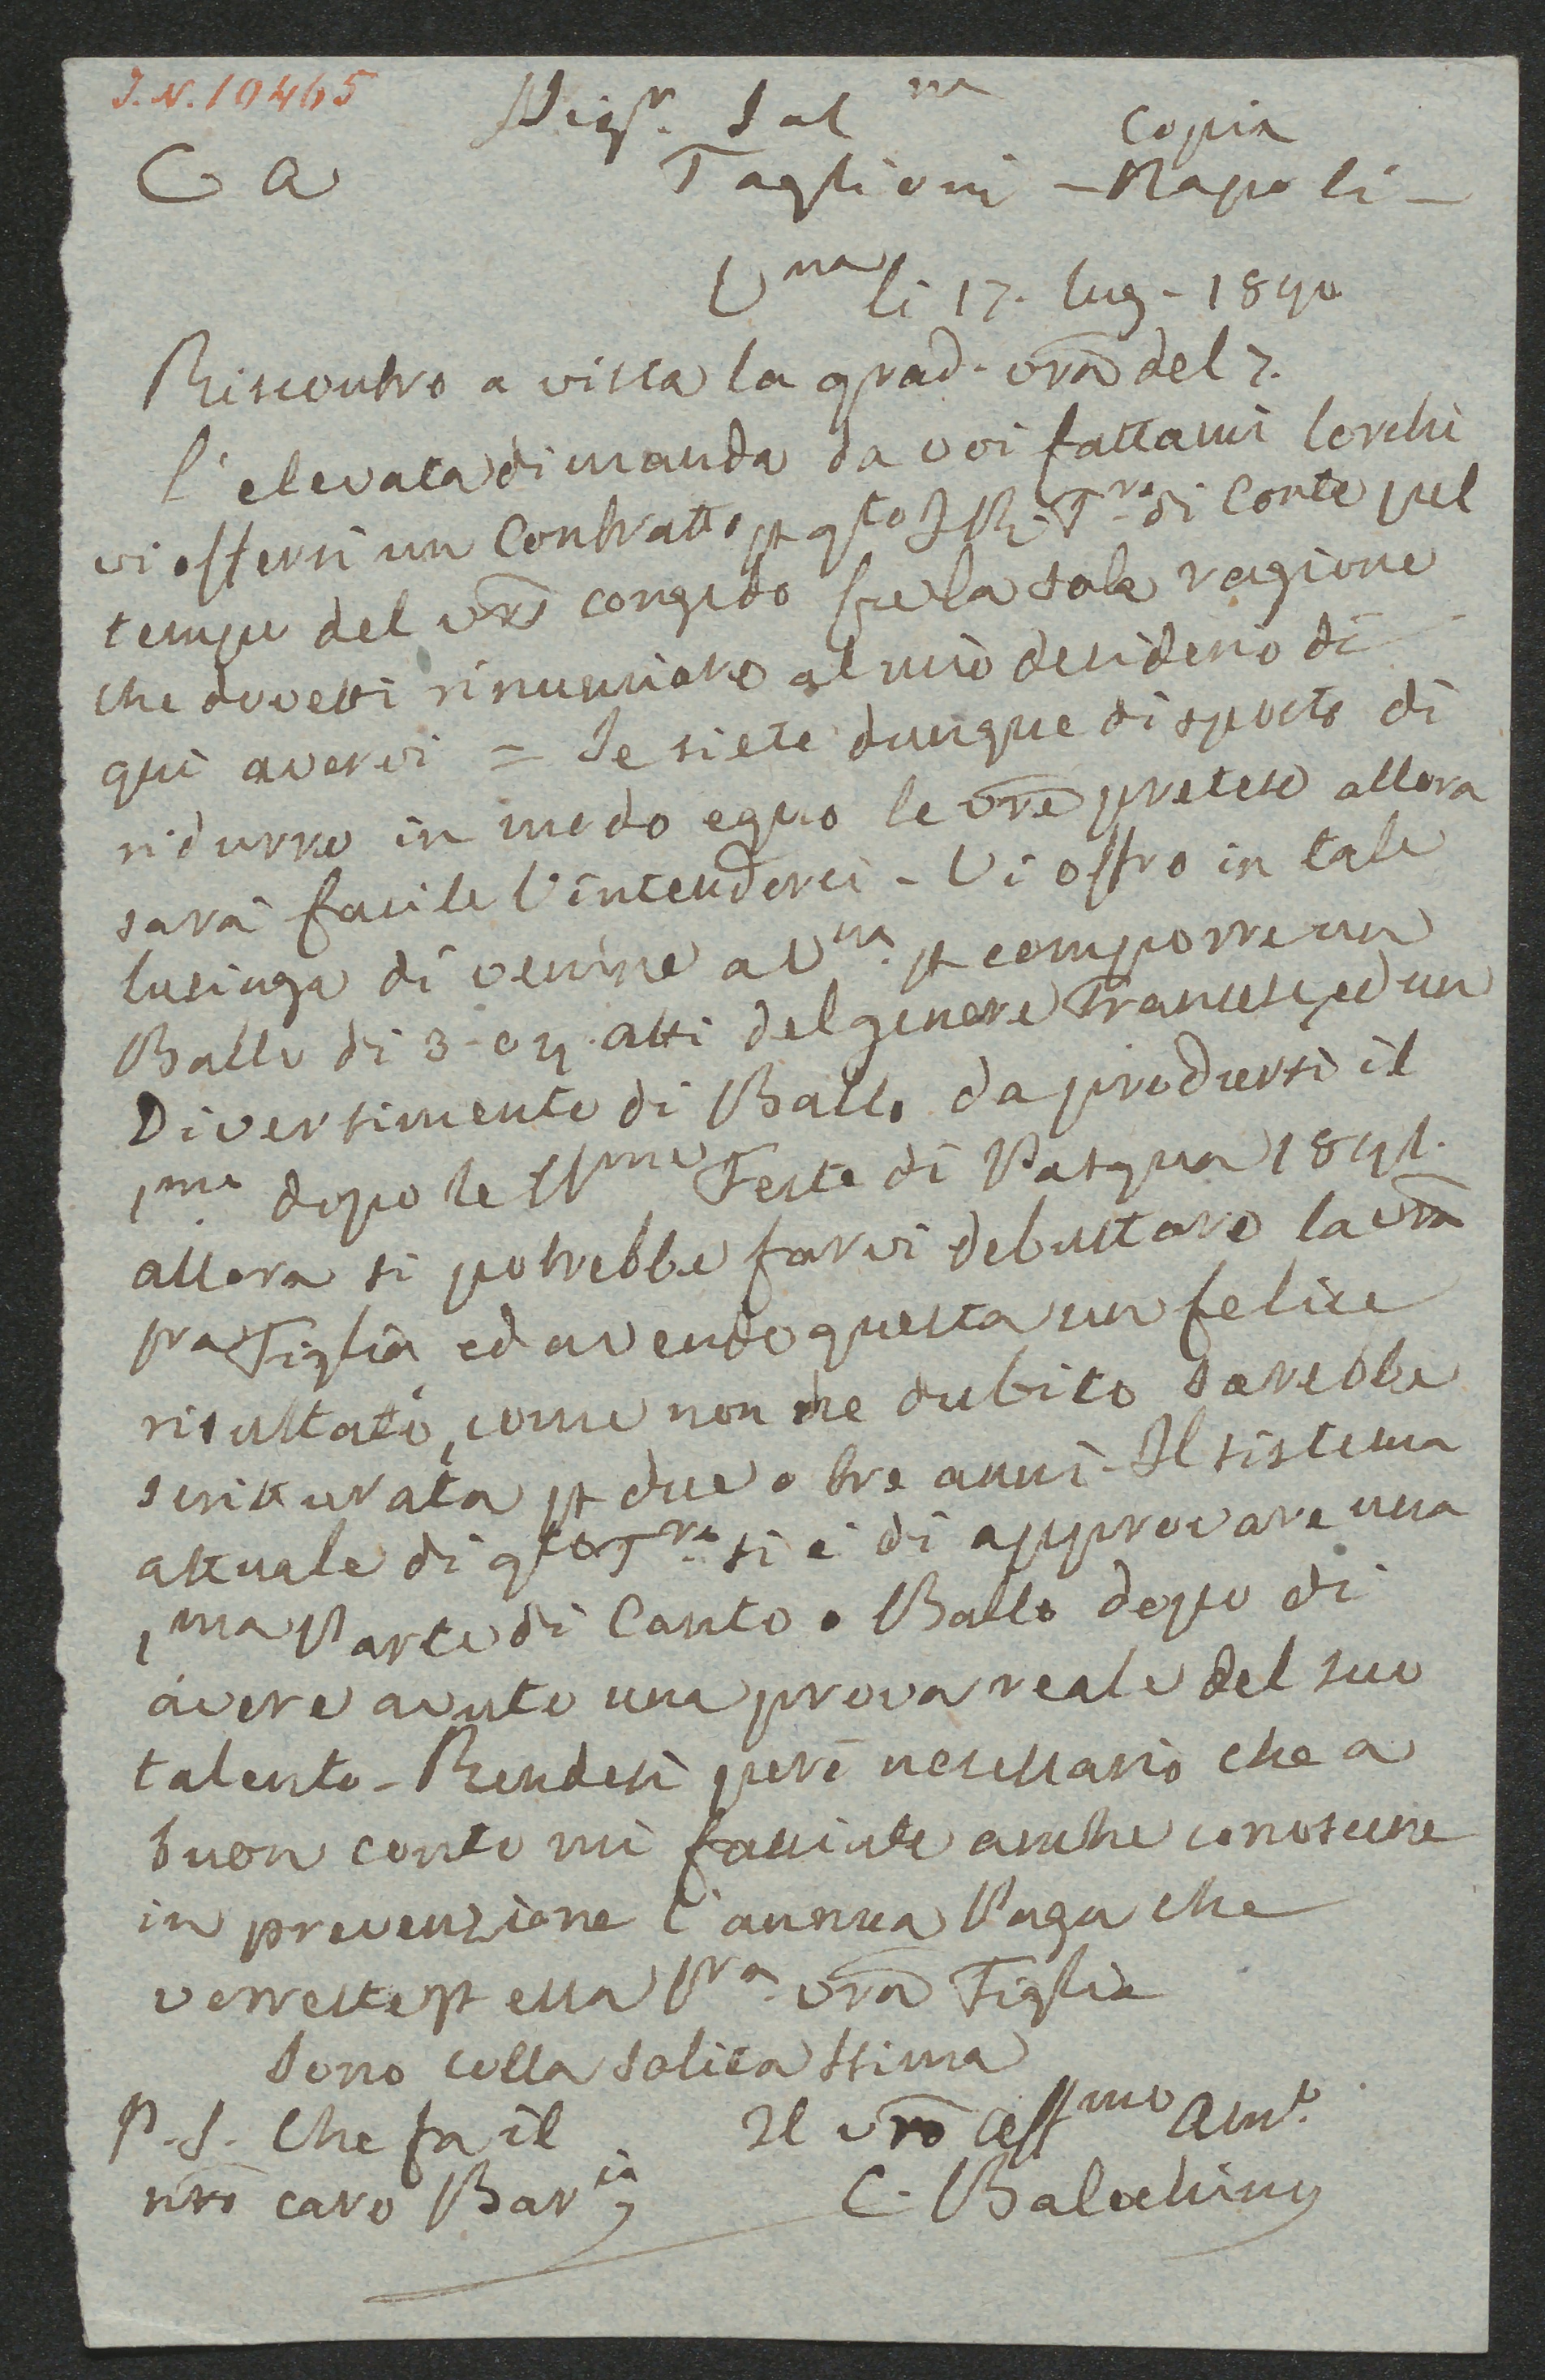 J.N. 10465
Sigr. Sal re
Copia
C a Taglioni - Napoli -
Vna li 17. lug - 1840
Riscontro a vista la grad. vra del 7.
l'elevata dimanda da voi fattami lorchè
vi offersi un Contratto p qto I R. Tro di Corte pel
tempo del vro congedo fu la sola ragione
che dovetti rinunciare al mio desiderio di
qui avervi = Se siete dunque disposto di
ridurre in modo equo le vre pretese allora
sarà facile l'intenderci - Vi offro in tale
lusinga di venire a Vna. p comporre un
Ballo di 3 - o 4. atti del genere Francese, ed un
Divertimento di Ballo da prodursi il
1mo dopo le SSme Feste di Pasqua 1841.
allora si potrebbe farvi debuttare la vra
pra Figlia ed avendo questa un felice
risultato, come non ne dubito sarebbe
scritturata p due o tre anni - Il sistema
attuale di qto Tro si è di approvare una
1ma Parte di Canto o Ballo dopo di
avere avuto una prova reale del suo
talento - Rendesi però necessario che a
buon conto mi facciate anche conoscere
in prevenzione l'annua Paga che
vorreste p essa Pra. vra Figlia
Sono colla solita stima
P.S. Che fa il Il vro aff mo Amo.
nro caro Bar ia C. Balochino